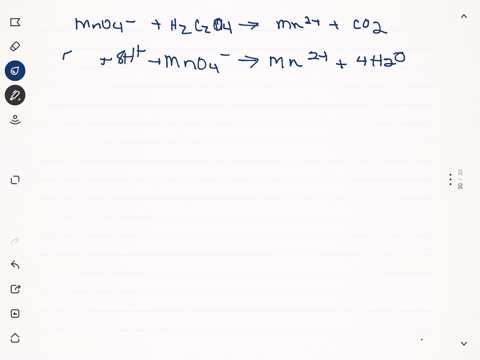 MnO4⁻ + H2C2O4 → Mn²⁺ + CO2
+ 8H⁺ + MnO4⁻ → Mn²⁺ + 4H2O
30 / 30